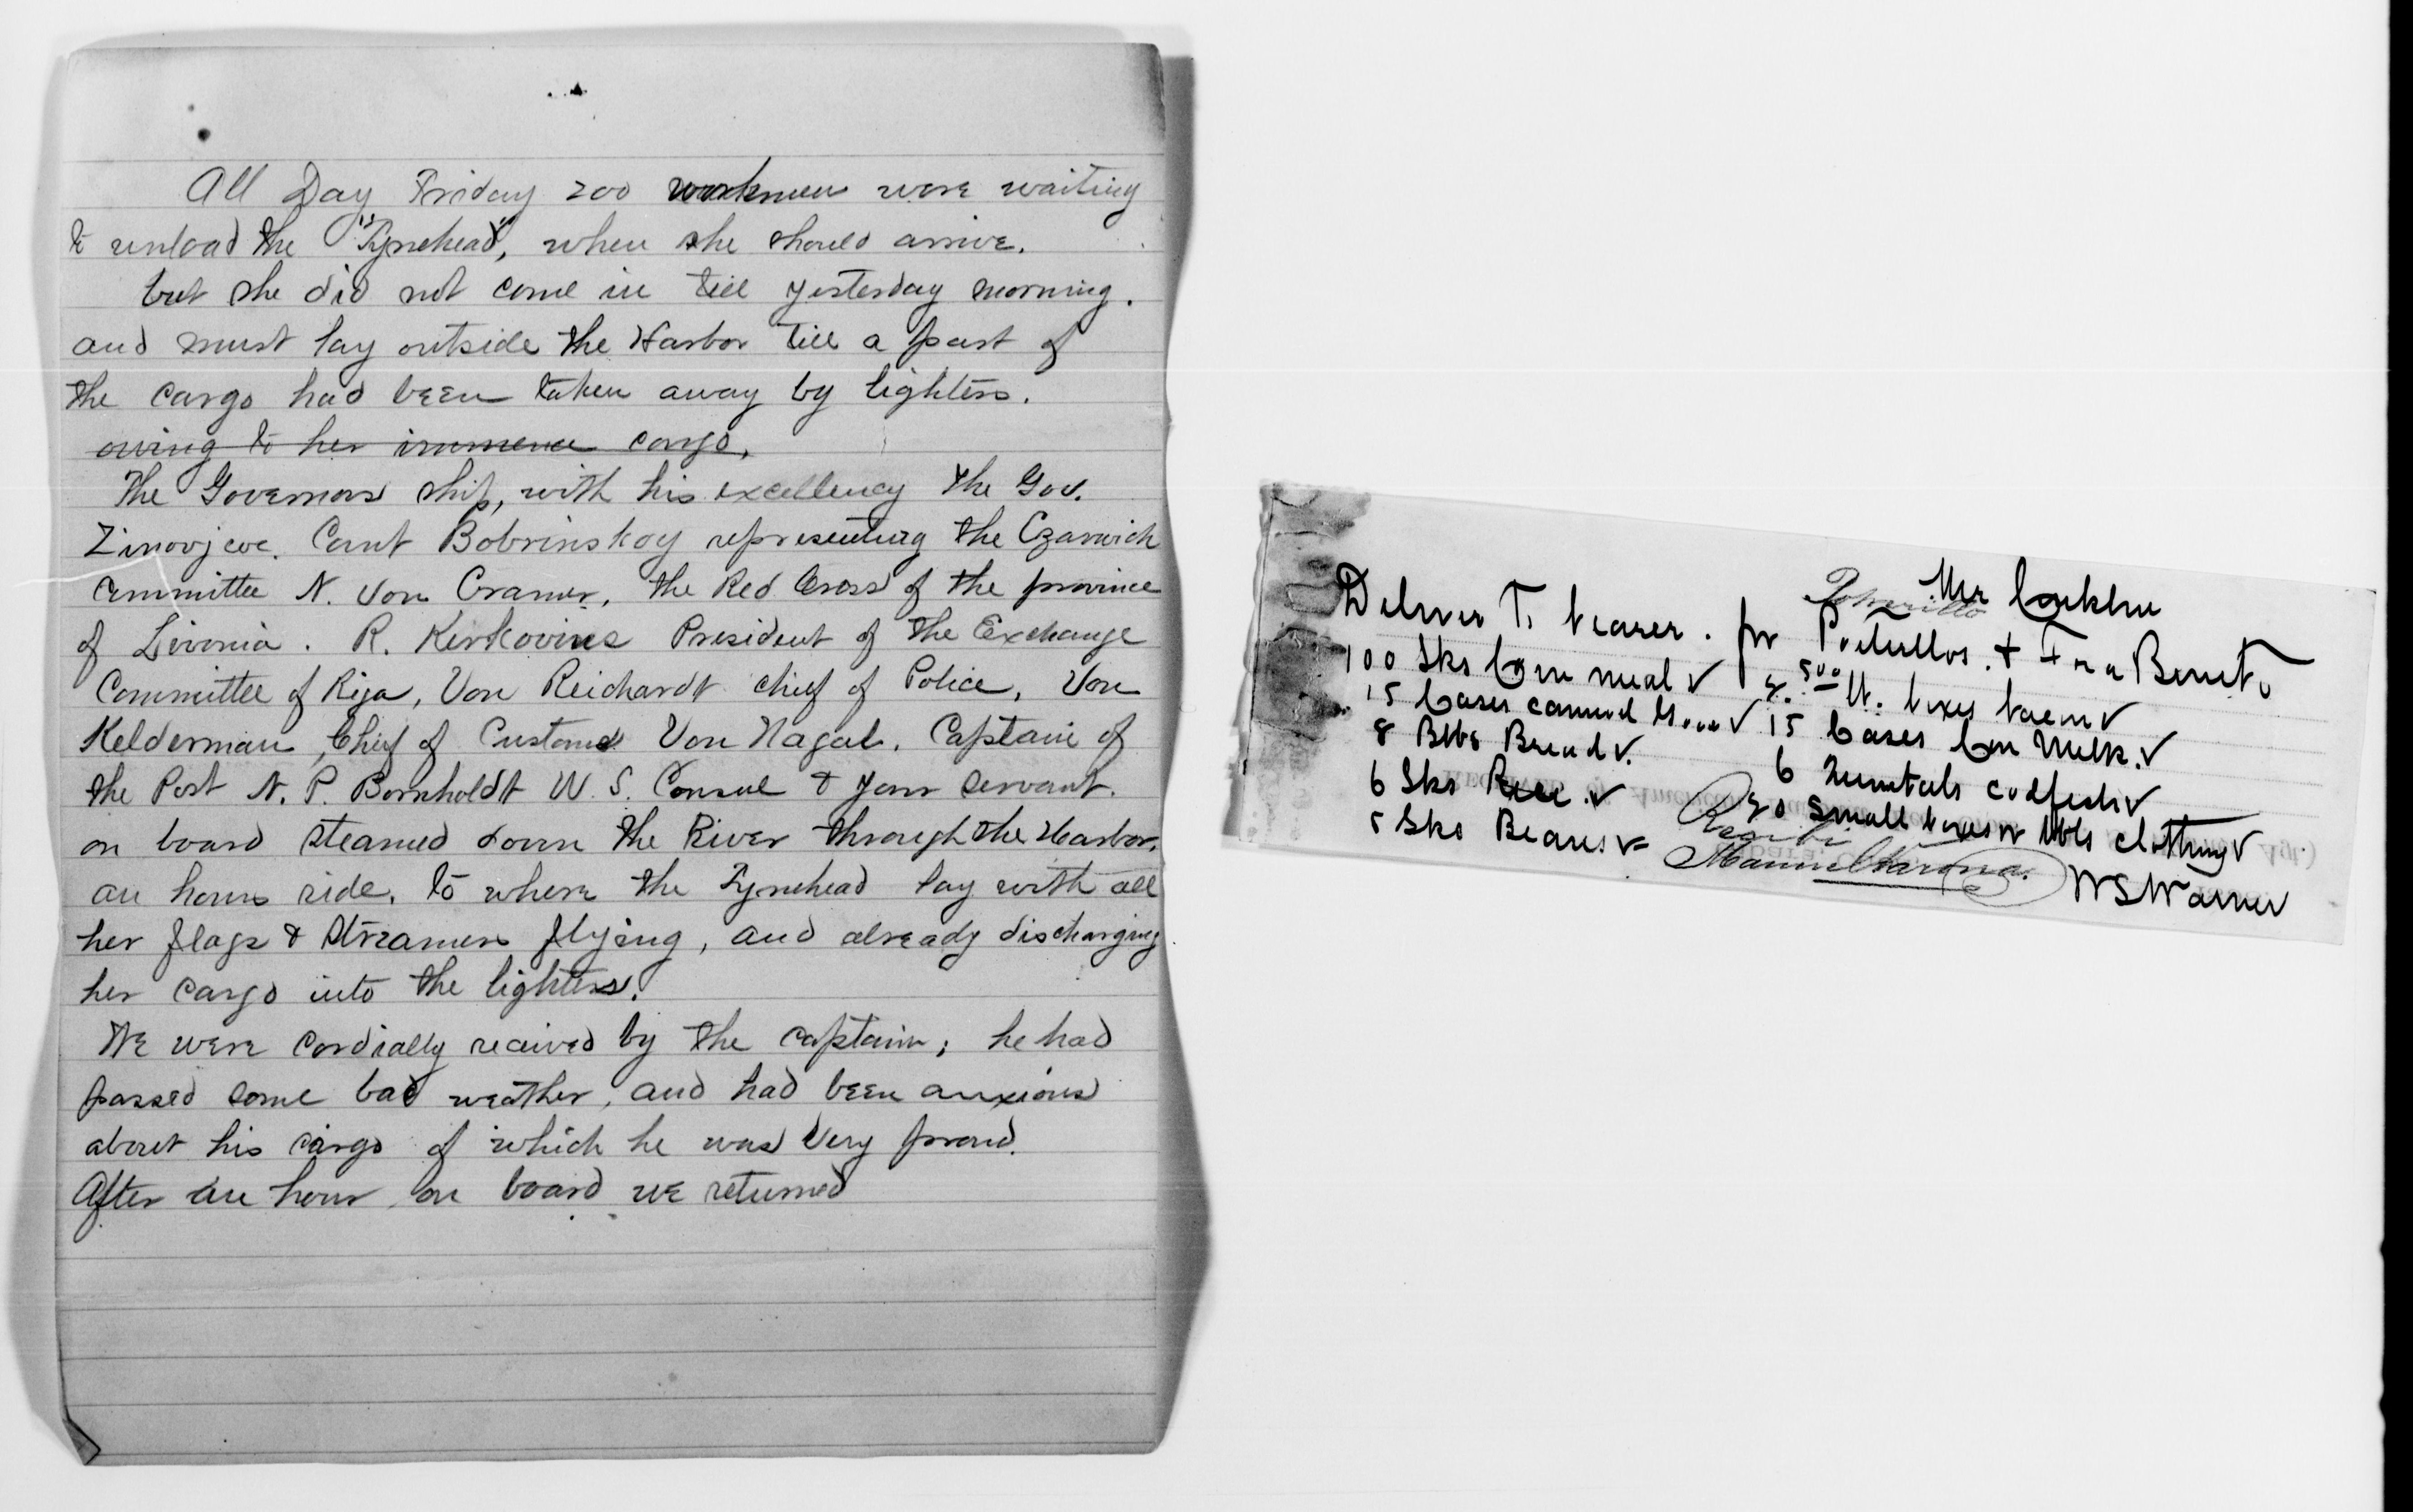 All Day Friday 200 workmen were waiting
to unload the "Tynehead", when she should arrive.
but she did not come in till yesterday morning.
and must lay outside the Harbor till a part of
the cargo had been taken away by lighters.
owing to her immence cargo,
The Governors ship, with his excellency the Gov.
Zinovjeve. Count Bobrinskoy representing the Czarwich
Committee N. Von Cramer, the Red Cross of the province
of Livonia. R. Kerkovius President of the Exchange
Committee of Riga, Von Reichardt chief of Police, Von
Kelderman, Chief of Customs Von Nagal. Captain of
the Port N. P. Bornholdt U. S. Consul & your servant.
on board steamed down the River through the Harbor.
an hours ride. to where the Tynehead lay with all
her flags & streamers flying, and already discharging
her cargo into the lighters.
We were cordially recived by the captain; he had
passed some bad weather, and had been anxious
about his cargo of which he was very proud.
After an hour on board we returned
Mr
Deliver To bearer. for & Fra Benito
100 Sks Corn meal ✓ 500 lb. boxes bacon ✓
15 Cases canned ✓ 15 Cases Con Milk. ✓
8 Bbls Bread ✓. 6 Quintals codfish ✓
6 Sks Rice. ✓ 20 Small boxes or bbls clothing ✓
5 Sks Beans ✓
Recibi
Manuel
WS Warner